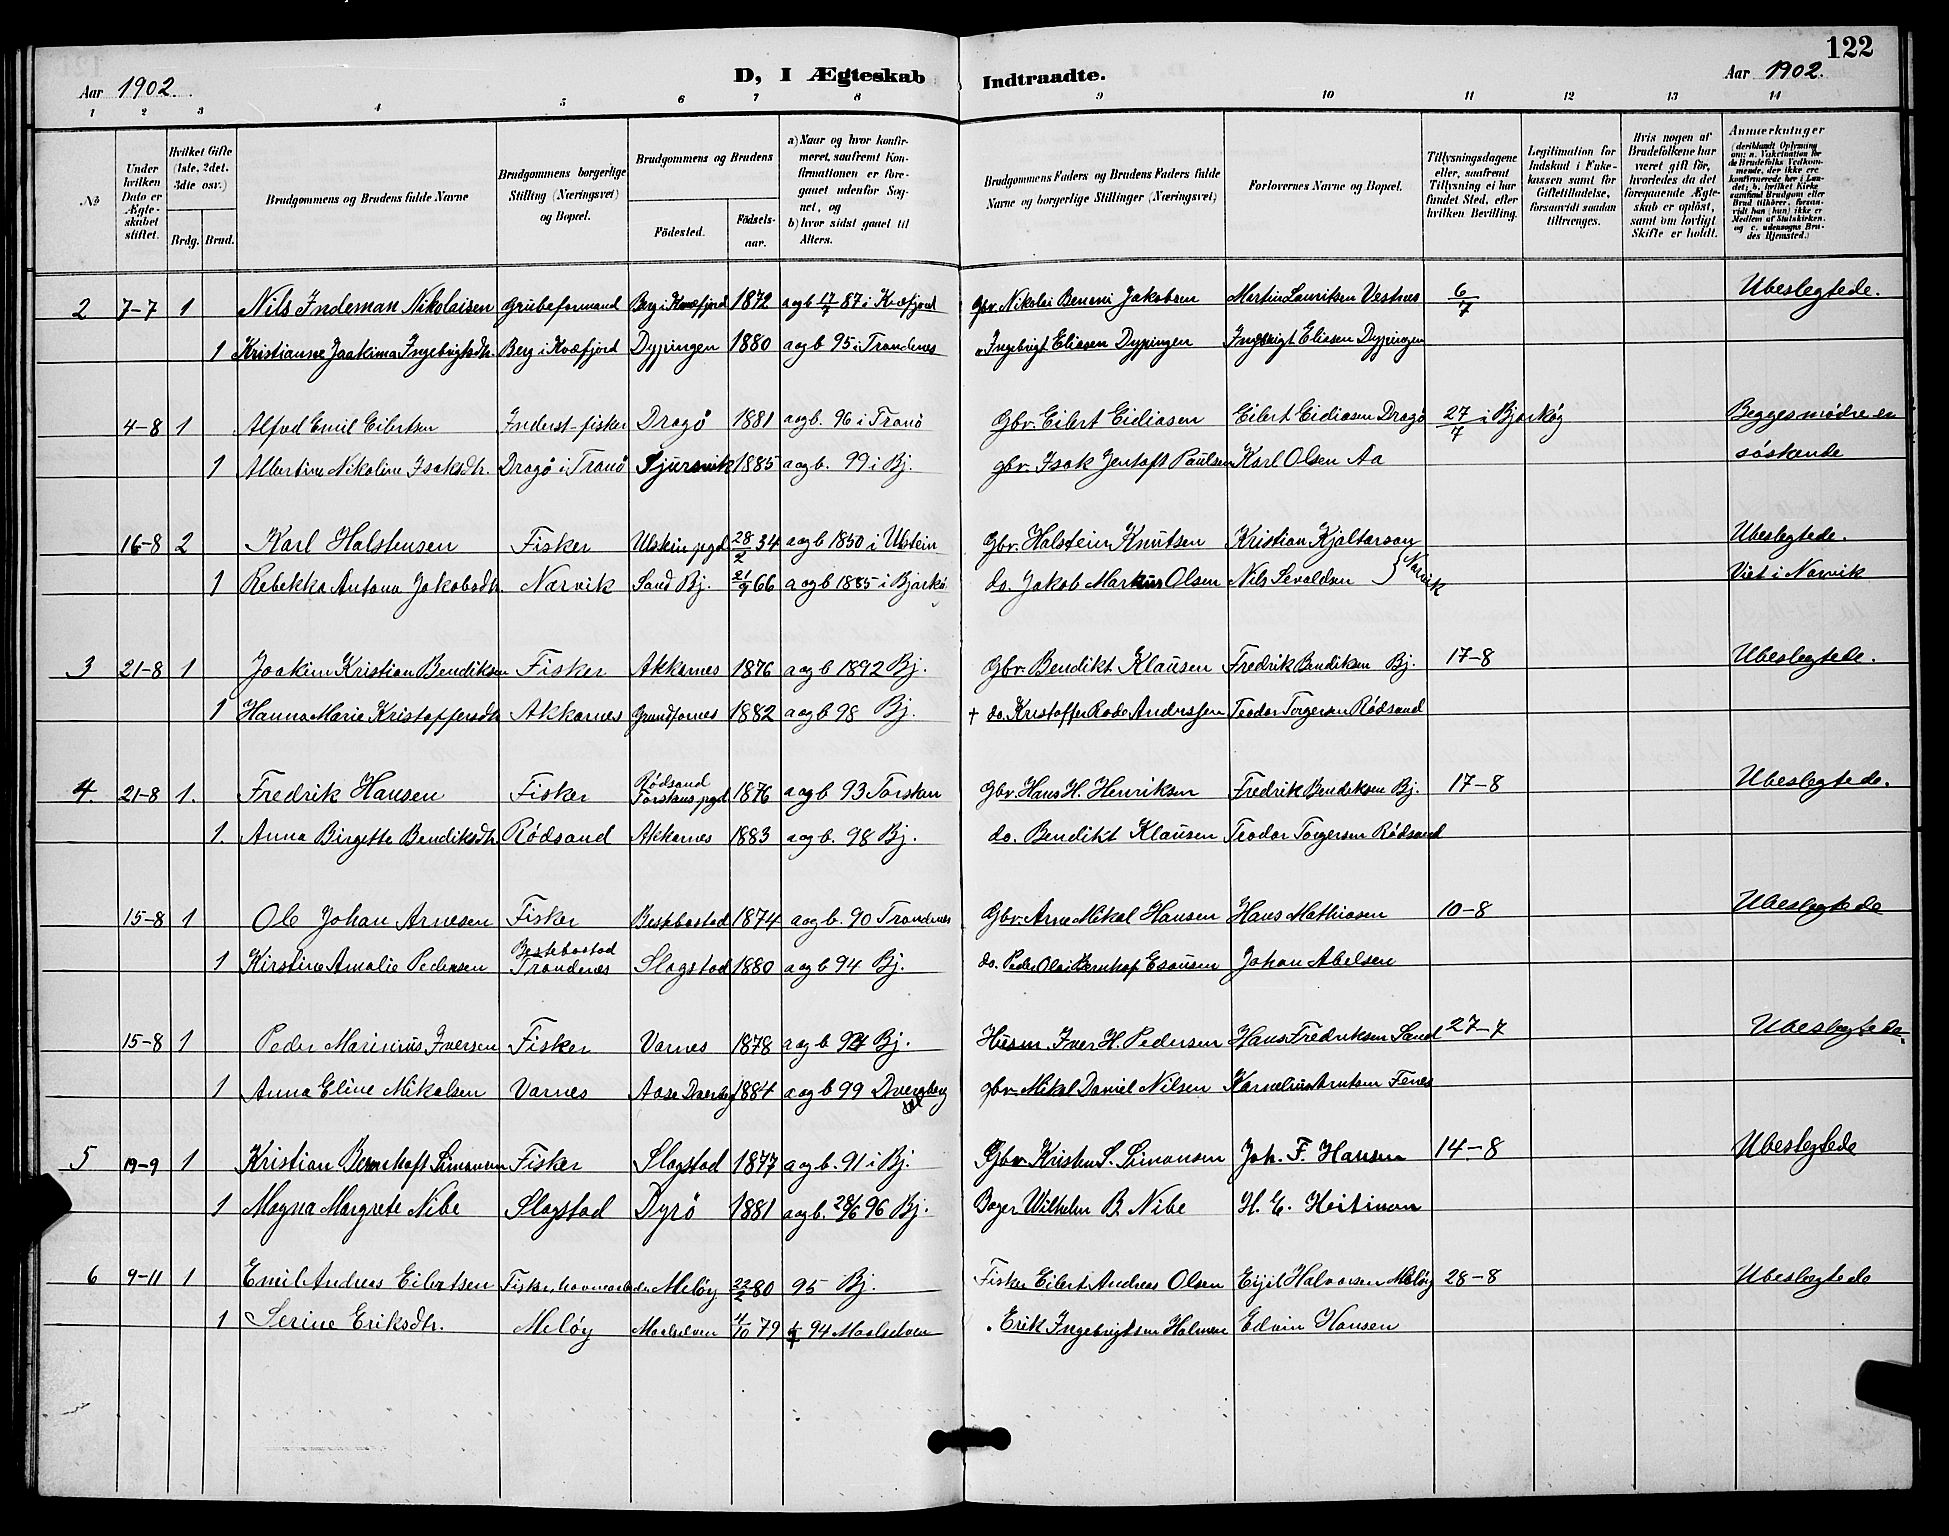 122
Aar 1902. D, I Ægteskab Indtraadte. Aar 1902.
1 2 3 4 5 6 7 8 9 10 11 12 13 14
No
Under hvilken Dato er Ægteskabet stiftet.
Hvilket Gifte (1ste, 2det, 3die osv.)
Brdg. Brud.
Brudgommens og Brudens fulde Navne
Brudgommens borgerlige Stilling (Næringsvei) og Bopæl.
Brudgommens og Brudens
Födested. Födselsaar.
a) Naar og hvor konfirmeret, saafremt Konfirmationen er foregaaet udenfor Sognet, og
b) hvor sidst gaaet til Alters.
Brudgommens Faders og Brudens Faders fulde Navne og borgerlige Stillinger (Næringsvei)
Forlovernes Navne og Bopæl.
Tillysningsdagene eller, saafremt Tillysning ei har fundet Sted, efter hvilken Bevilling.
Legitimation for Indskud i Enkekassen samt for Giftetilladelse, forsaavidt saadan tiltrænges.
Hvis nogen af Brudefolkene har været gift før, hvorledes da det foregaaende Ægteskab er oplöst, samt om lovligt Skifte er holdt.
Anmerkninger (deriblandt Oplysning om: a. Vakcination for de Brudefolks Vedkommende, der ikke ere konfirmerede her i Landet; b. hvilket Kirkesamfund Brudgom eller Brud tilhörer, forsaavidt han (hun) ikke er Medlem af Statskirken. og c. udensogns Brudes Hjemsted.)
2 7-7 1 Nils Indeman Nikolaisen Grubeformand Berg i Kvæfjord 1872 a og b 17/7 87 i Kvæfjord Gbr. Nikolai Benoni Jakobsen Martin Lauritsen Vestnes 6/7 Ubeslegtede.
1 Kristianne Joakima Ingebrigtsdtr. Berg i Kvæfjord Dyppingen 1880 a og b 95 i Trondenes " Ingebrigt Eliasen Dyppingen Ingebrigt Eliasen Dyppingen
4-8 1 Alfred Emil Eilertsen Inderst-fisker Dragö 1881 a og b. 96 i Tranö Gbr. Eilert Eidiasen Eilert Eidiasen Dragö 27/7 i Bjarköy Begges mødre er
1 Albertine Nikoline Isaksdtr. Dragö i Tranö Sjursvik 1885 a og b. 99 i Bj. gbr. Isak Jentoft Paulsen Karl Olsen Aa søskende
16-8 2 Karl Halstensen Fisker Ulstein pgd 28/2 34 a og b 1850 i Ulstein Gbr. Halstein Knutsen Kristian Kjeltarson Ubeslegtede.
1 Rebekka Antona Jakobsdtr. Narvik Sand Bj. 21/9 66 a og b 1885 i Bjarkö do. Jakob Markus Olsen Nils Sevaldsen } Narvik Viet i Narvik
3 21-8 1 Joakim Kristian Bendiksen Fisker Akkarnes 1876 a og b 1892 Bj. Gbr. Bendikt Klausen Fredrik Bendiksen Bj. 17-8 Ubeslegtede.
1 Hanna Marie Kristoffersdtr Akkarnes Grundfarnes 1882 a og b 98 Bj. + do. Kristoffer Rode Anderssen Teodor Torgersen Rödsand
4. 21-8 1. Fredrik Hansen Fisker Rödsand Torskens pgd 1876 a og b 93 Torsken Gbr. Hans H. Henriksen Fredrik Bendiksen Bj. 17-8 Ubeslegtede.
1. Anna Birgette Bendiksdtr. Rödsand Akkarnes 1883 a og b. 98 Bj. do. Bendikt Klausen Teodor Torgersen Rödsand
15-8 1 Ole Johan Arnesen Fisker Bestebostad 1874 a og b. 90 Trondenes Gbr. Arne Mikal Hansen Hans Mathiasen 10-8 Ubeslegtede
1 Kirstine Amalie Pedersen Bestebostad Trondenes Slagstad 1880 a og b 94 Bj. do. Peder Olai Bernhof Esausen Johan Abelsen
15-8 1 Peder Marinius Iversen Fisker Varnes 1878 a og b 94 Bj. Husm. Iver H. Pedersen Hans Fredriksen Sand 27-7 Ubeslegtede.
1 Anna Eline Mikalsen Varnes Aase Dverberg 1884 a og b 99 Dverberg gbr. Mikal Daniel Nilsen Kornelius Arntsen Fenes
5 19-9 1 Kristian Bernhoft Simonsen Fisker Slagstad 1877 a og b. 91 i Bj. Gbr. Kristen S. Simonsen Joh. F. Hansen 14-8 Ubeslegtede
1 Magna Margrete Nibe Slagstad Dyrö 1881 a og b. 28/6 96 Bj. Bager Wilhelm B. Nibe H. E. Heitman
6 9-11 1 Emil Andreas Eilertsen Fisker, Meløy 22/2 80 95 Bj. Fisker Eilert Andreas Olsen Eigil Halvorsen Meløy 28-8 Ubeslegtede
1 Serine Eriksdtr. Meløy Maalselven 4/10 79 94 Maalselven Erik Ingebrigtsen Holmen Edvin Hansen